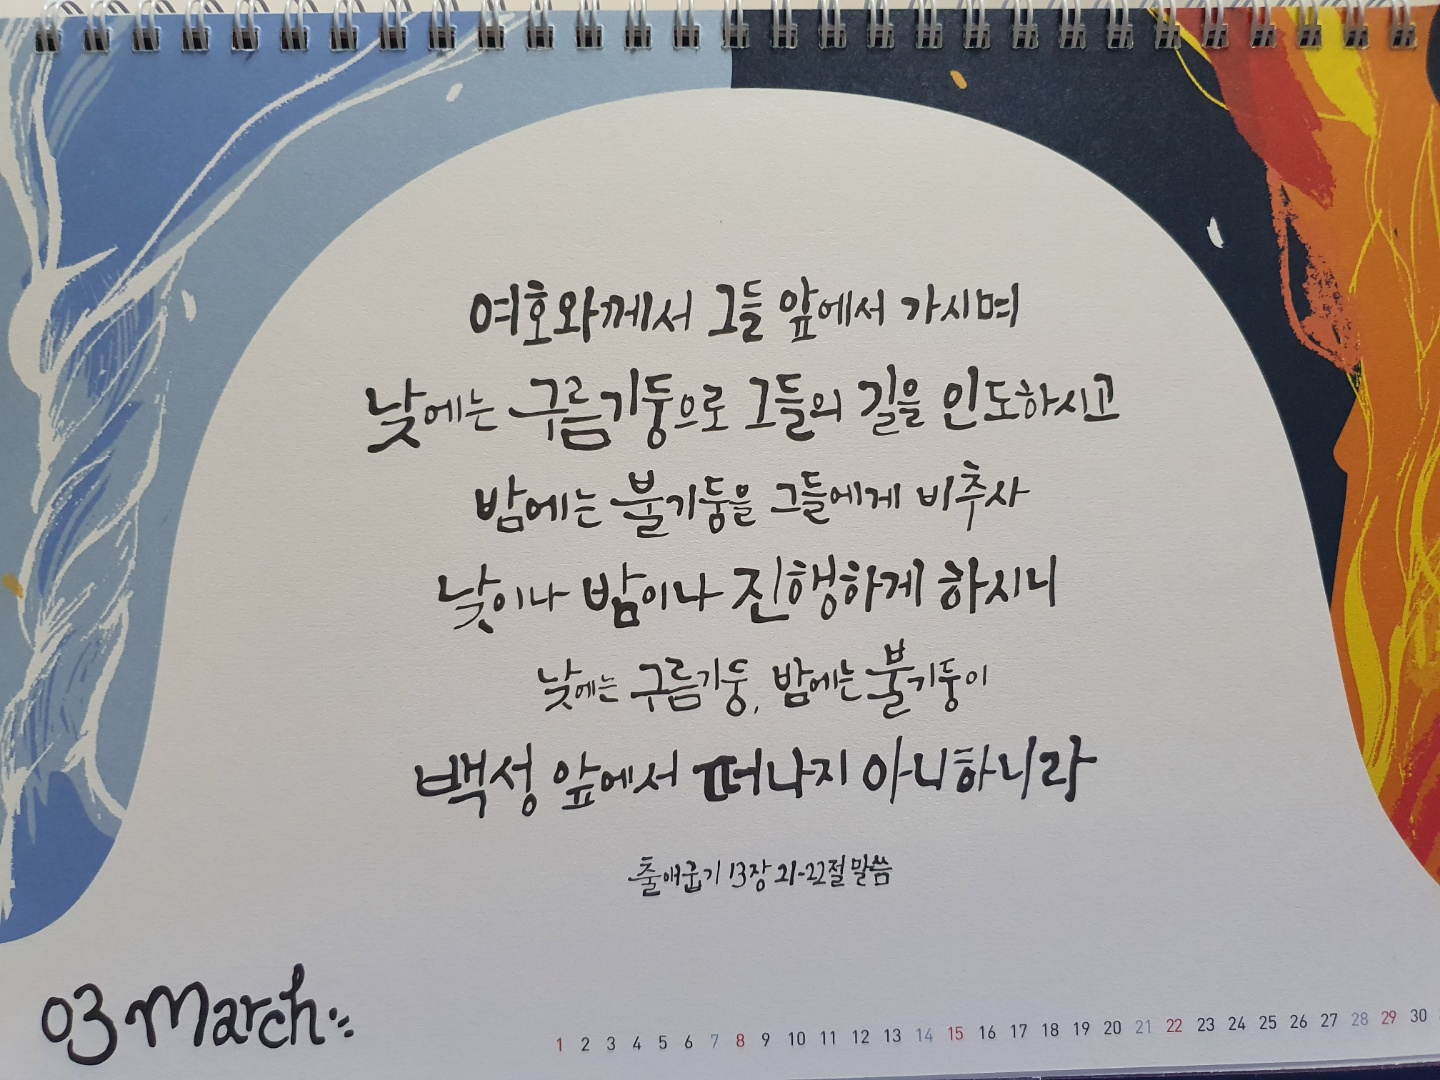 여호와께서 그들 앞에서 가시며
낮에는 구름기둥으로 그들의 길을 인도하시고
밤에는 불기둥을 그들에게 비추사
낮이나 밤이나 진행하게 하시니
낮에는 구름기둥, 밤에는 불기둥이
백성 앞에서 떠나지 아니하니라
출애굽기 13장 21-22절 말씀
03 March
1 2 3 4 5 6 7 8 9 10 11 12 13 14 15 16 17 18 19 20 21 22 23 24 25 26 27 28 29 30